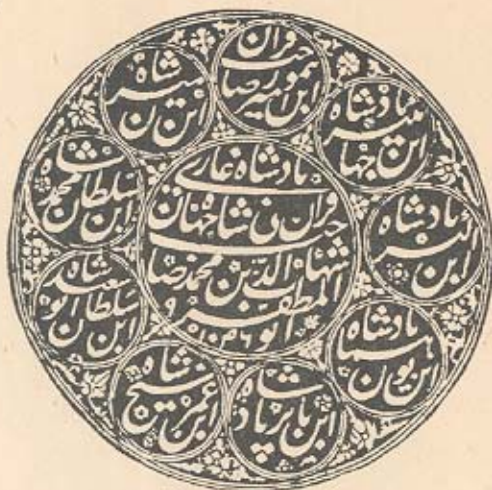 ابو المظفر
شهاب الدین محمد
صاحب قران ثانی شاه جهان
بادشاه غازی
۱۰۴۶ ۹
ابن جهانگیر بادشاه
ابن اکبر بادشاه
ابن همایون بادشاه
ابن بابر پادشاه
ابن عمر شیخ شاه
ابن سلطان ابو سعید شاه
ابن سلطان محمد شاه
ابن میران شاه
ابن امیر تیمور صاحب قران